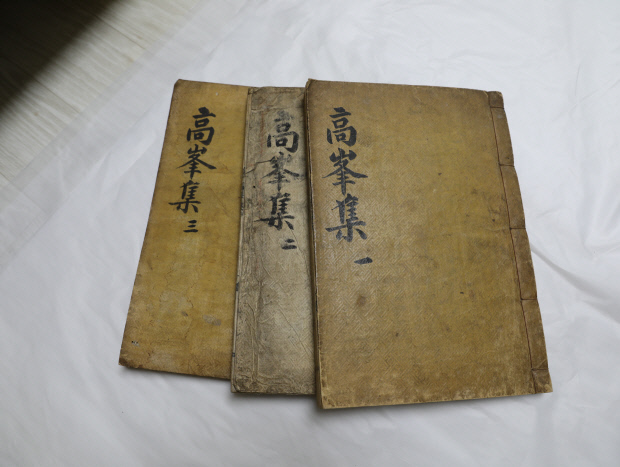 高峯集 一
高峯集 二
高峯集 三